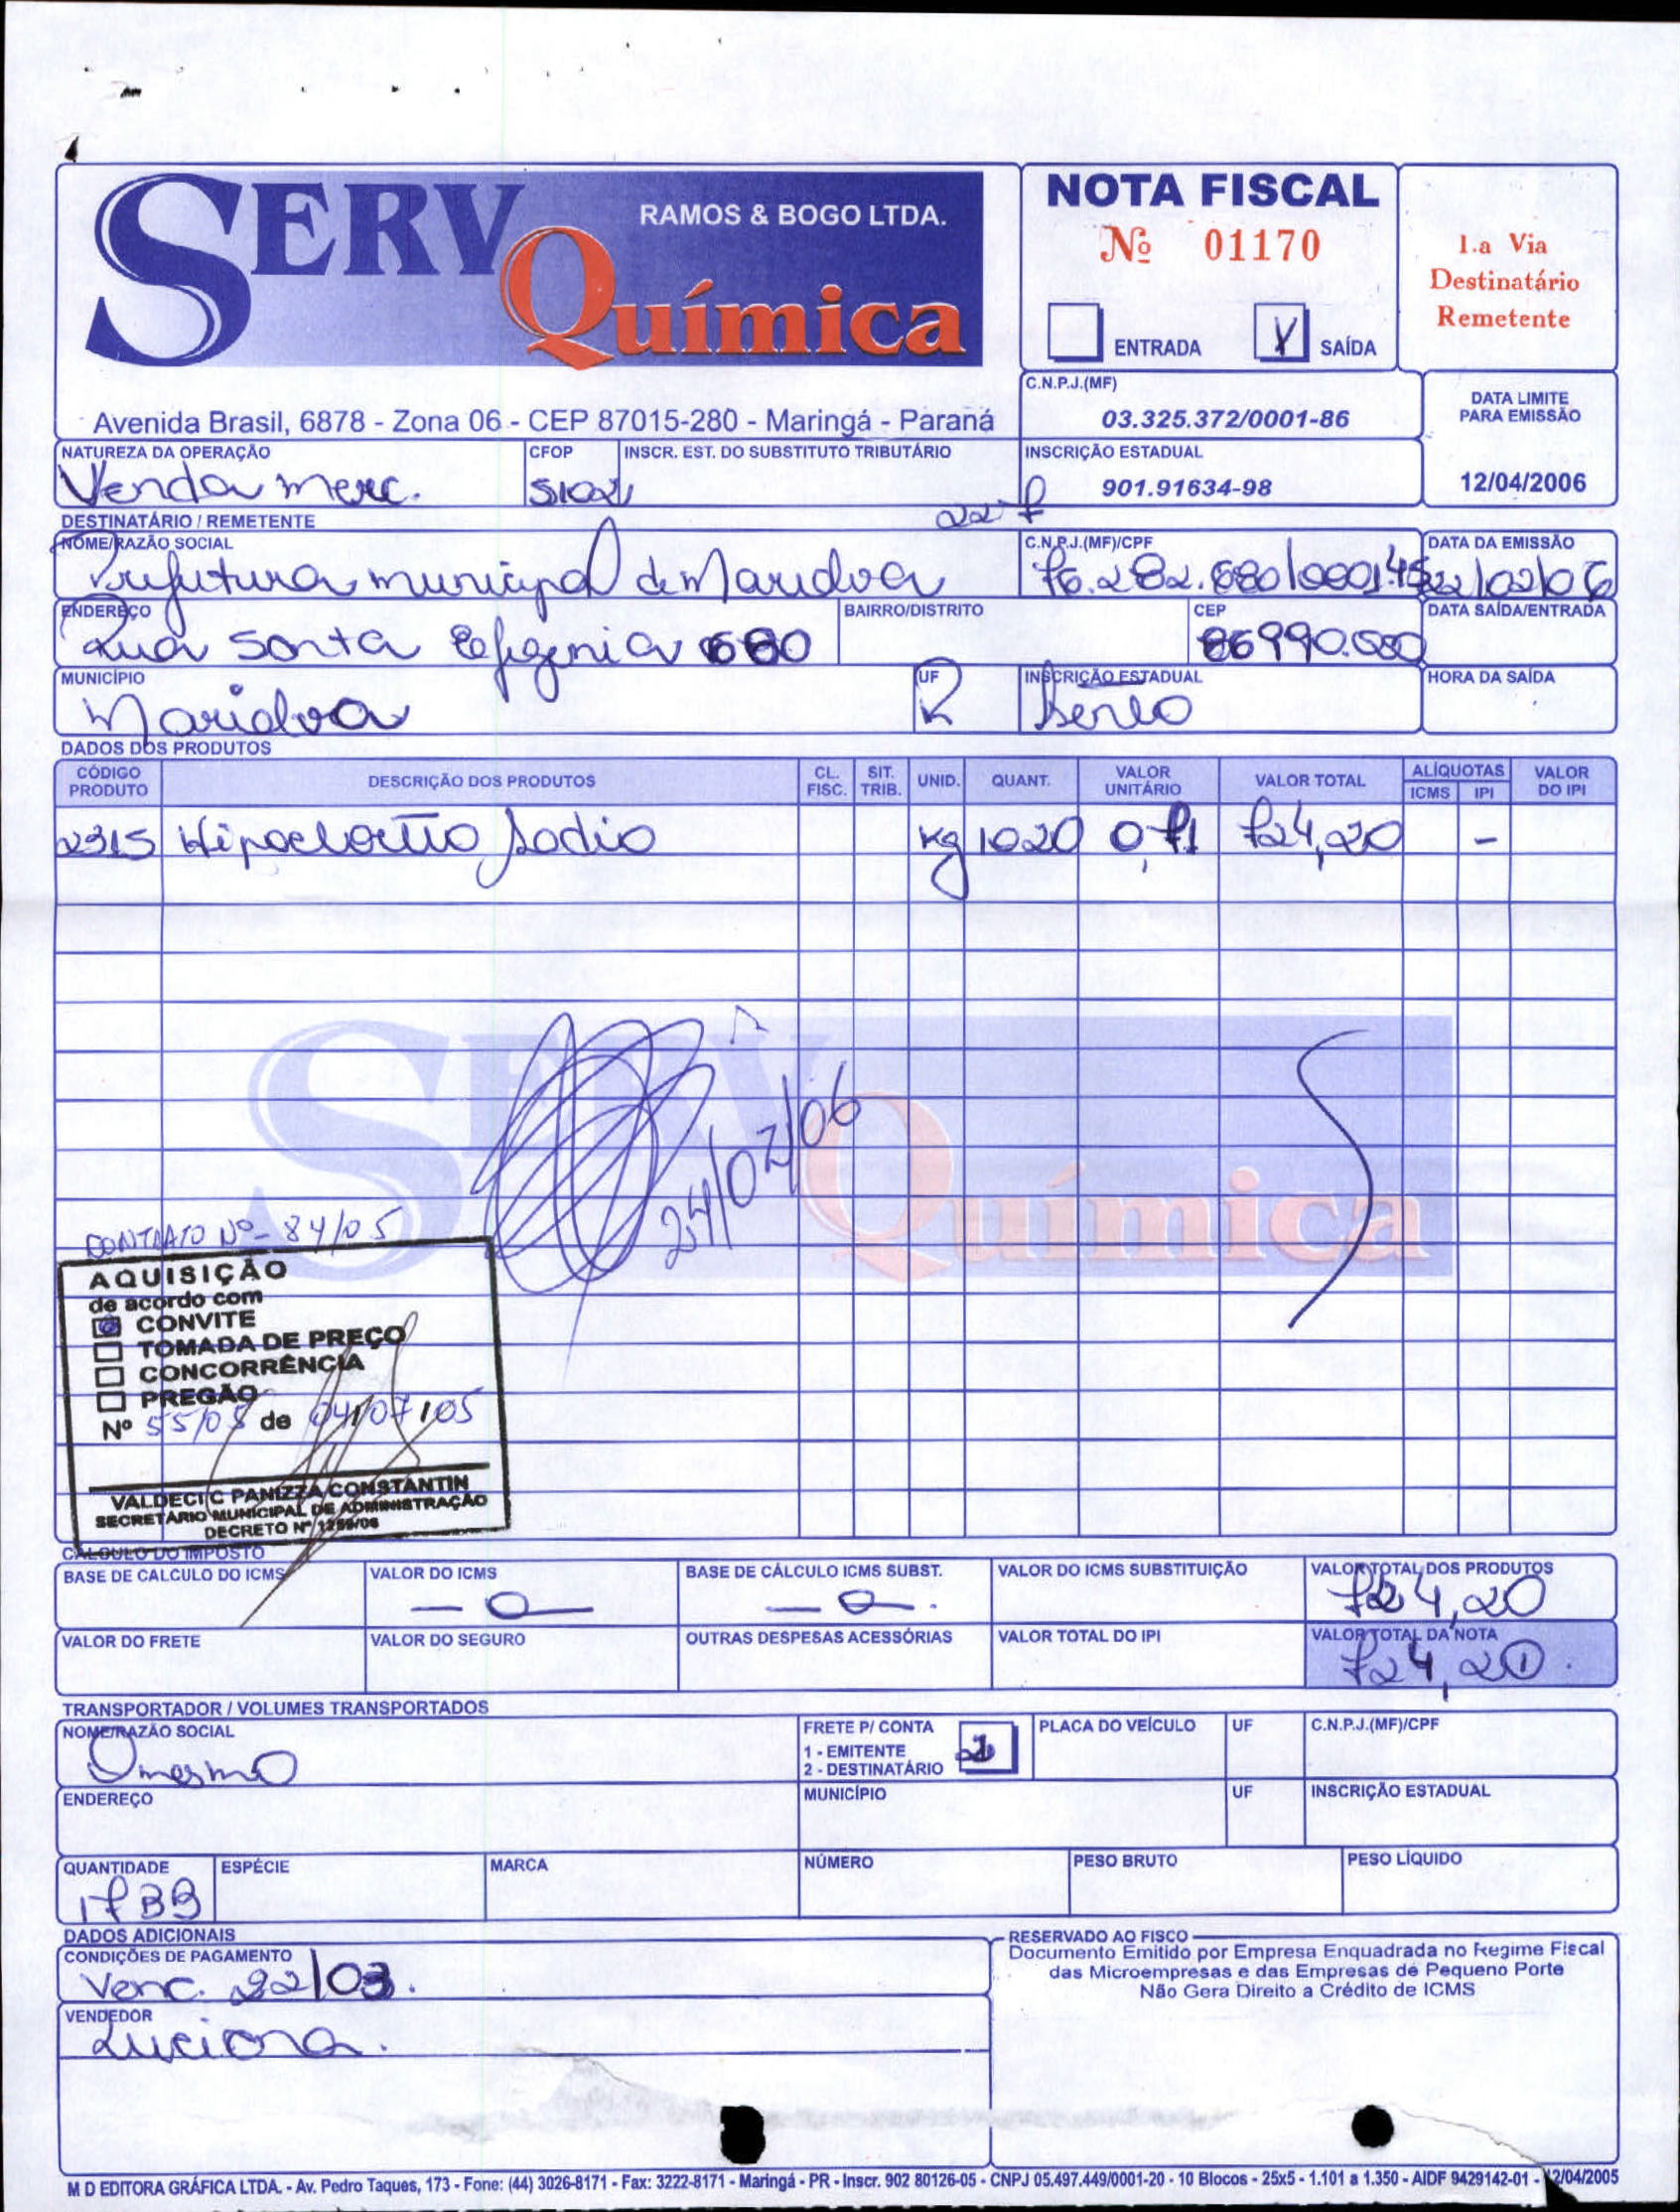 SERV Química
RAMOS & BOGO LTDA.
Avenida Brasil, 6878 - Zona 06 - CEP 87015-280 - Maringá - Paraná
NOTA FISCAL
Nº 01170
ENTRADA X SAÍDA
1.a Via
Destinatário
Remetente
C.N.P.J.(MF)
03.325.372/0001-86
DATA LIMITE
PARA EMISSÃO
12/04/2006
NATUREZA DA OPERAÇÃO CFOP INSCR. EST. DO SUBSTITUTO TRIBUTÁRIO INSCRIÇÃO ESTADUAL
Venda merc. 5102 901.91634-98
DESTINATÁRIO / REMETENTE
NOME/RAZÃO SOCIAL C.N.P.J.(MF)/CPF DATA DA EMISSÃO
Prefeitura municipal de Marialva 76.282.680/0001.45 22/02/06
ENDEREÇO BAIRRO/DISTRITO CEP DATA SAÍDA/ENTRADA
Rua Santa Efigenia 680 86990.000
MUNICÍPIO UF INSCRIÇÃO ESTADUAL HORA DA SAÍDA
Marialva PR Isento
DADOS DOS PRODUTOS
CÓDIGO PRODUTO DESCRIÇÃO DOS PRODUTOS CL. FISC. SIT. TRIB. UNID. QUANT. VALOR UNITÁRIO VALOR TOTAL ALÍQUOTAS ICMS IPI VALOR DO IPI
2315 Hipoclorito Sodio kg 1020 0,71 724,20 -
SERV Química
24/02/06
CONTRATO Nº - 84/05
AQUISIÇÃO
de acordo com
CONVITE
TOMADA DE PREÇO
CONCORRÊNCIA
PREGÃO
Nº 55/05 de 04/07/05
VALDECI C PANIZZA CONSTANTIN
SECRETÁRIO MUNICIPAL DE ADMINISTRAÇÃO
DECRETO Nº
CÁLCULO DO IMPOSTO
BASE DE CÁLCULO DO ICMS VALOR DO ICMS BASE DE CÁLCULO ICMS SUBST. VALOR DO ICMS SUBSTITUIÇÃO VALOR TOTAL DOS PRODUTOS
- 0 - - 0 - 724,20
VALOR DO FRETE VALOR DO SEGURO OUTRAS DESPESAS ACESSÓRIAS VALOR TOTAL DO IPI VALOR TOTAL DA NOTA
724,20
TRANSPORTADOR / VOLUMES TRANSPORTADOS
NOME/RAZÃO SOCIAL FRETE P/ CONTA PLACA DO VEÍCULO UF C.N.P.J.(MF)/CPF
O mesmo
1 - EMITENTE
2 - DESTINATÁRIO
1
ENDEREÇO MUNICÍPIO UF INSCRIÇÃO ESTADUAL
QUANTIDADE ESPÉCIE MARCA NÚMERO PESO BRUTO PESO LÍQUIDO
17BB
DADOS ADICIONAIS
CONDIÇÕES DE PAGAMENTO
Venc. 22/03.
VENDEDOR
Luciana.
RESERVADO AO FISCO
Documento Emitido por Empresa Enquadrada no Regime Fiscal
das Microempresas e das Empresas de Pequeno Porte
Não Gera Direito a Crédito de ICMS
M D EDITORA GRÁFICA LTDA. - Av. Pedro Taques, 173 - Fone: (44) 3026-8171 - Fax: 3222-8171 - Maringá - PR - Inscr. 902 80126-05 - CNPJ 05.497.449/0001-20 - 10 Blocos - 25x5 - 1.101 a 1.350 - AIDF 9429142-01 - 12/04/2005